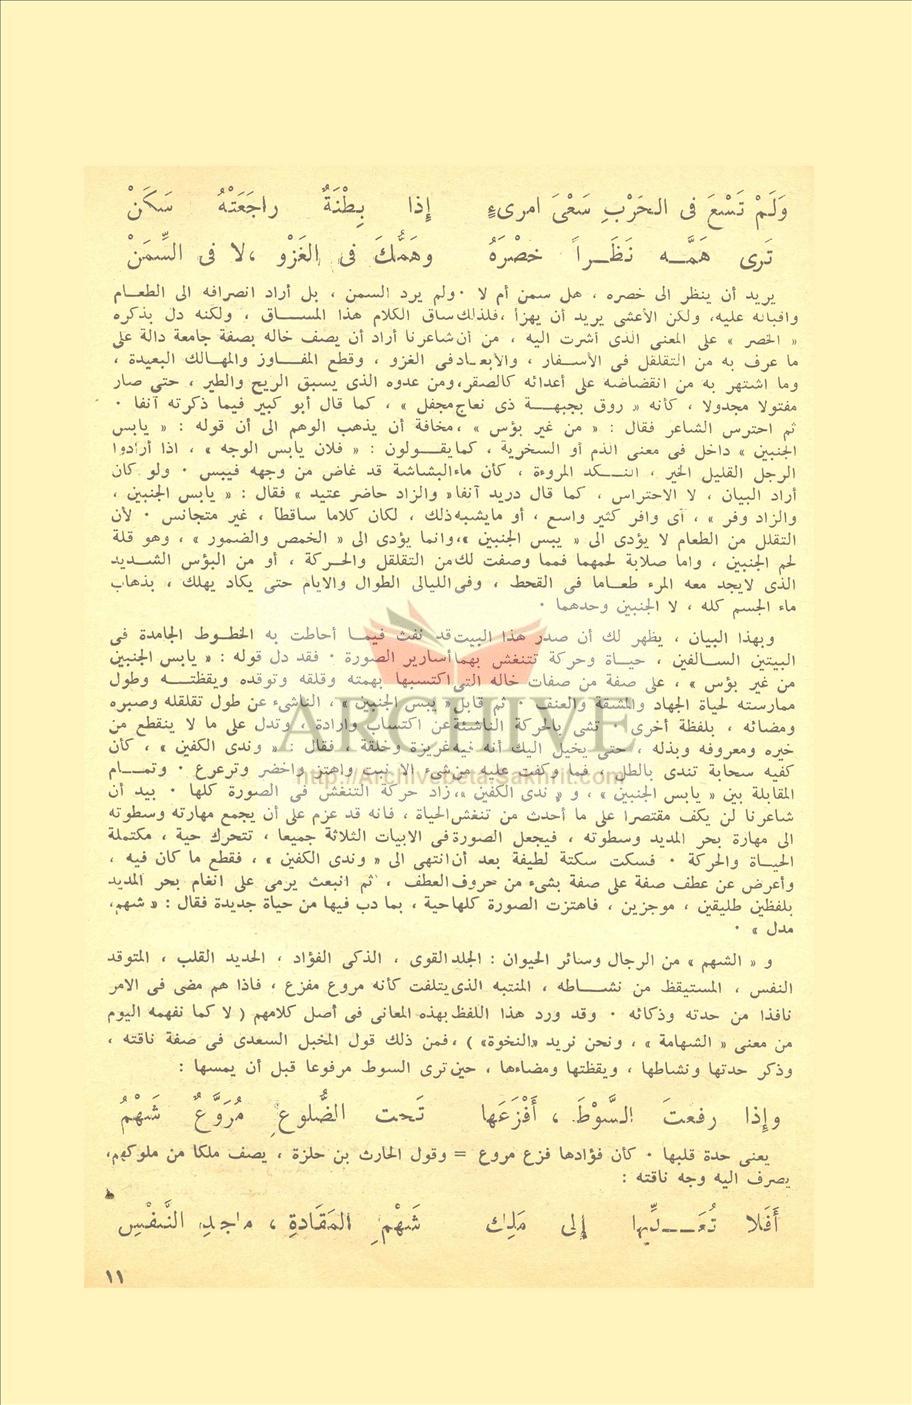 وَلَمْ تَسْعَ فى الحَرْبِ سَعْىَ امرىءٍ إِذا بِطْنَةٌ راجَعَتْهُ سَكَنْ
تَرى هَمَّــه نَظَــراً خصْرَهُ وهَمُّكَ فى الغَزْو ، لا فى السِّمَنْ
يريد أن ينظر الى خصره ، هل سمن أم لا ٠ ولم يرد السمن ، بل أراد انصرافه الى الطعــام
واقباله عليه، ولكن الأعشى يريد أن يهزأ ، فلذلك ساق الكلام هذا المســـاق ، ولكنه دل بذكره
« الخصر » على المعنى الذى أشرت اليه ، من أن شاعرنا أراد أن يصف خاله بصفة جامعة دالة على
ما عرف به من التقلقل فى الأســفار ، والأبعـاد فى الغزو ، وقطع المفــاوز والمهـالك البعيدة ،
وما اشتهر به من انقضاضه على أعدائه كالصقر، ومن عدوه الذى يسبق الريح والطير ، حتى صار
مفتولا مجدولا ، كأنه « روق بجبهــة ذى نعاج مجفل » ، كما قال أبو كبير فيما ذكرته آنفا ٠
ثم احترس الشاعر فقال : « من غير بؤس » ، مخافة أن يذهب الوهم الى أن قوله : « يابس
الجنبين » داخل فى معنى الذم أو السخرية ، كما يقــولون : « فلان يابس الوجه » ، اذا أرادوا
الرجل القليل الخير ، النــكد المروءة ، كأن ماء البشاشة قد غاض من وجهه فيبس ٠ ولو كان
أراد البيان ، لا الاحتراس ، كما قال دريد آنفا « والزاد حاضر عتيد » فقال : « يابس الجنبين ،
والزاد وفر » ، أى وافر كثير واسع ، أو مايشبه ذلك ، لكان كلاما ساقطا ، غير متجانس ٠ لأن
التقلل من الطعام لا يؤدى الى « يبس الجنبين »، وانما يؤدى الى « الخمص والضمور » ، وهو قلة
لحم الجنبين ، واما صلابة لحمهما فمما وصفت لك من التقلقل والحــركة ، أو من البؤس الشــديد
الذى لايجد معه المرء طعــاما فى القحط ، وفى الليالى الطوال والايام حتى يكاد يهلك ، بذهاب
ماء الجسم كله ، لا الجنبين وحدهما ٠
وبهذا البيان ، يظهر لك أن صدر هذا البيت قد نفث فيمــا أحاطت به الخطــوط الجامدة فى
البيتين الســالفين ، حيــاة وحركة تتنغش بهما أسارير الصورة ٠ فقد دل قوله : « يابس الجنبين
من غير بؤس » ، على صفة من صفات خاله التى اكتسبها بهمته وقلقه وتوقده ويقظتــه وطول
ممارسته لحياة الجهاد والمشقة والعنف ٠ ثم قابل « يبس الجنبين » ، الناشىء عن طول تقلقله وصبره
ومضائه ، بلفظة أخرى تشى بالحركة الناشئة عن اكتساب وارادة ، وتدل على ما لا ينقطع من
خيره ومعروفه وبذله ، حتى يخيل اليك أنه فيه غريزة وخلقة ، فقال : « وندى الكفين » ، كأن
كفيه سحابة تندى بالطل ، فما وكفت عليه من شىء الا نبت واهتز واخضر وترعرع ٠ وتمــام
المقابلة بين « يابس الجنبين » ، و « ندى الكفين »، زاد حركة التنغش فى الصورة كلها ٠ بيد أن
شاعرنا لن يكف مقتصرا على ما أحدث من تنغش الحياة ، فانه قد عزم على أن يجمع مهارته وسطوته
الى مهارة بحر المديد وسطوته ، فيجعل الصورة فى الابيات الثلاثة جميعا ، تتحرك حية ، مكتملة
الحيــاة والحركة ٠ فسكت سكتة لطيفة بعد أن انتهى الى « وندى الكفين » ، فقطع ما كان فيه ،
وأعرض عن عطف صفة على صفة بشىء من حروف العطف ، ثم انبعث يرمى على انغام بحر المديد
بلفظين طليقين ، موجزين ، فاهتزت الصورة كلها حية ، بما دب فيها من حياة جديدة فقال : « شهم،
مدل » ٠
و « الشهم » من الرجال وسائر الحيوان : الجلد القوى ، الذكى الفؤاد ، الحديد القلب ، المتوقد
النفس ، المستيقظ من نشــاطه ، المنتبه الذى يتلفت كأنه مروع مفزع ، فاذا هم مضى فى الامر
نافذا من حدته وذكائه ٠ وقد ورد هذا اللفظ بهذه المعانى فى أصل كلامهم ( لا كما نفهمه اليوم
من معنى « الشهامة » ، ونحن نريد «النخوة» ) ، فمن ذلك قول المخبل السعدى فى صفة ناقته ،
وذكر حدتها ونشاطها ، ويقظتها ومضاءها ، حين ترى السوط مرفوعا قبل أن يمسها :
وإِذا رفعتَ السَّوْطَ ، أَفْزَعَها تَحت الضُّلوعِ مُرَوَّعٌ شَهْمُ
يعنى حدة قلبها ٠ كان فؤادها فزع مروع = وقول الحارث بن حلزة ، يصف ملكا من ملوكهم،
يصرف اليه وجه ناقته :
أَفَلا تُعَــدِّيها إِلى مَلِك شَهْمِ المَقَادةِ ، ماجدِ النَّفْسِ
١١
ARCHIVE
http://Archivebeta.Sakhrit.com